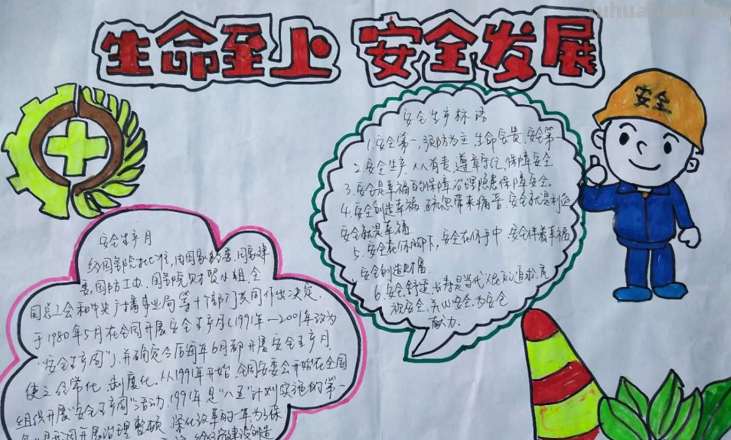 生命至上 安全发展
安全
安全生产标语
1. 安全第一, 预防为主 生命宝贵, 安全第一
2. 安全生产, 人人有责 遵章守纪, 保障安全
3. 安全是幸福的保障 治理隐患保障安全.
4. 安全创造幸福 疏忽带来痛苦 安全就是
安全就是幸福
5. 安全在你脚下, 安全在你手中 安全伴着幸福
安全创造财富
6. 安全 舒适 长寿是当代人民的追求
安全
献力.
安全生产月
经国务院批准, 由国家经委、国家建
委、国防工办、国务院财贸小组、全
国总工会和中央广播事业局等十个部门共同作出决定.
于1980年5月在全国开展安全生产月(1991年—2001年改为
"安全生产周"), 并确定今后每年6月都开展安全生产月
使之经常化、制度化. 从1991年开始, 全国安委会开始在全国
组织开展"安全生产周"活动 1991年是"八五"计划实施的第一
开展治理整顿、深化改革的